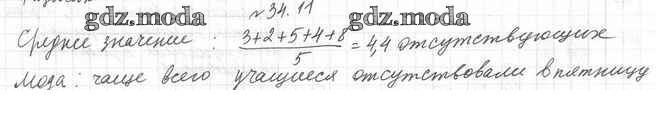 № 34.11
gdz.moda gdz.moda
Среднее значение : (3+2+5+4+8)/5 = 4,4 отсутствующих
Мода: чаще всего учащиеся отсутствовали в пятницу